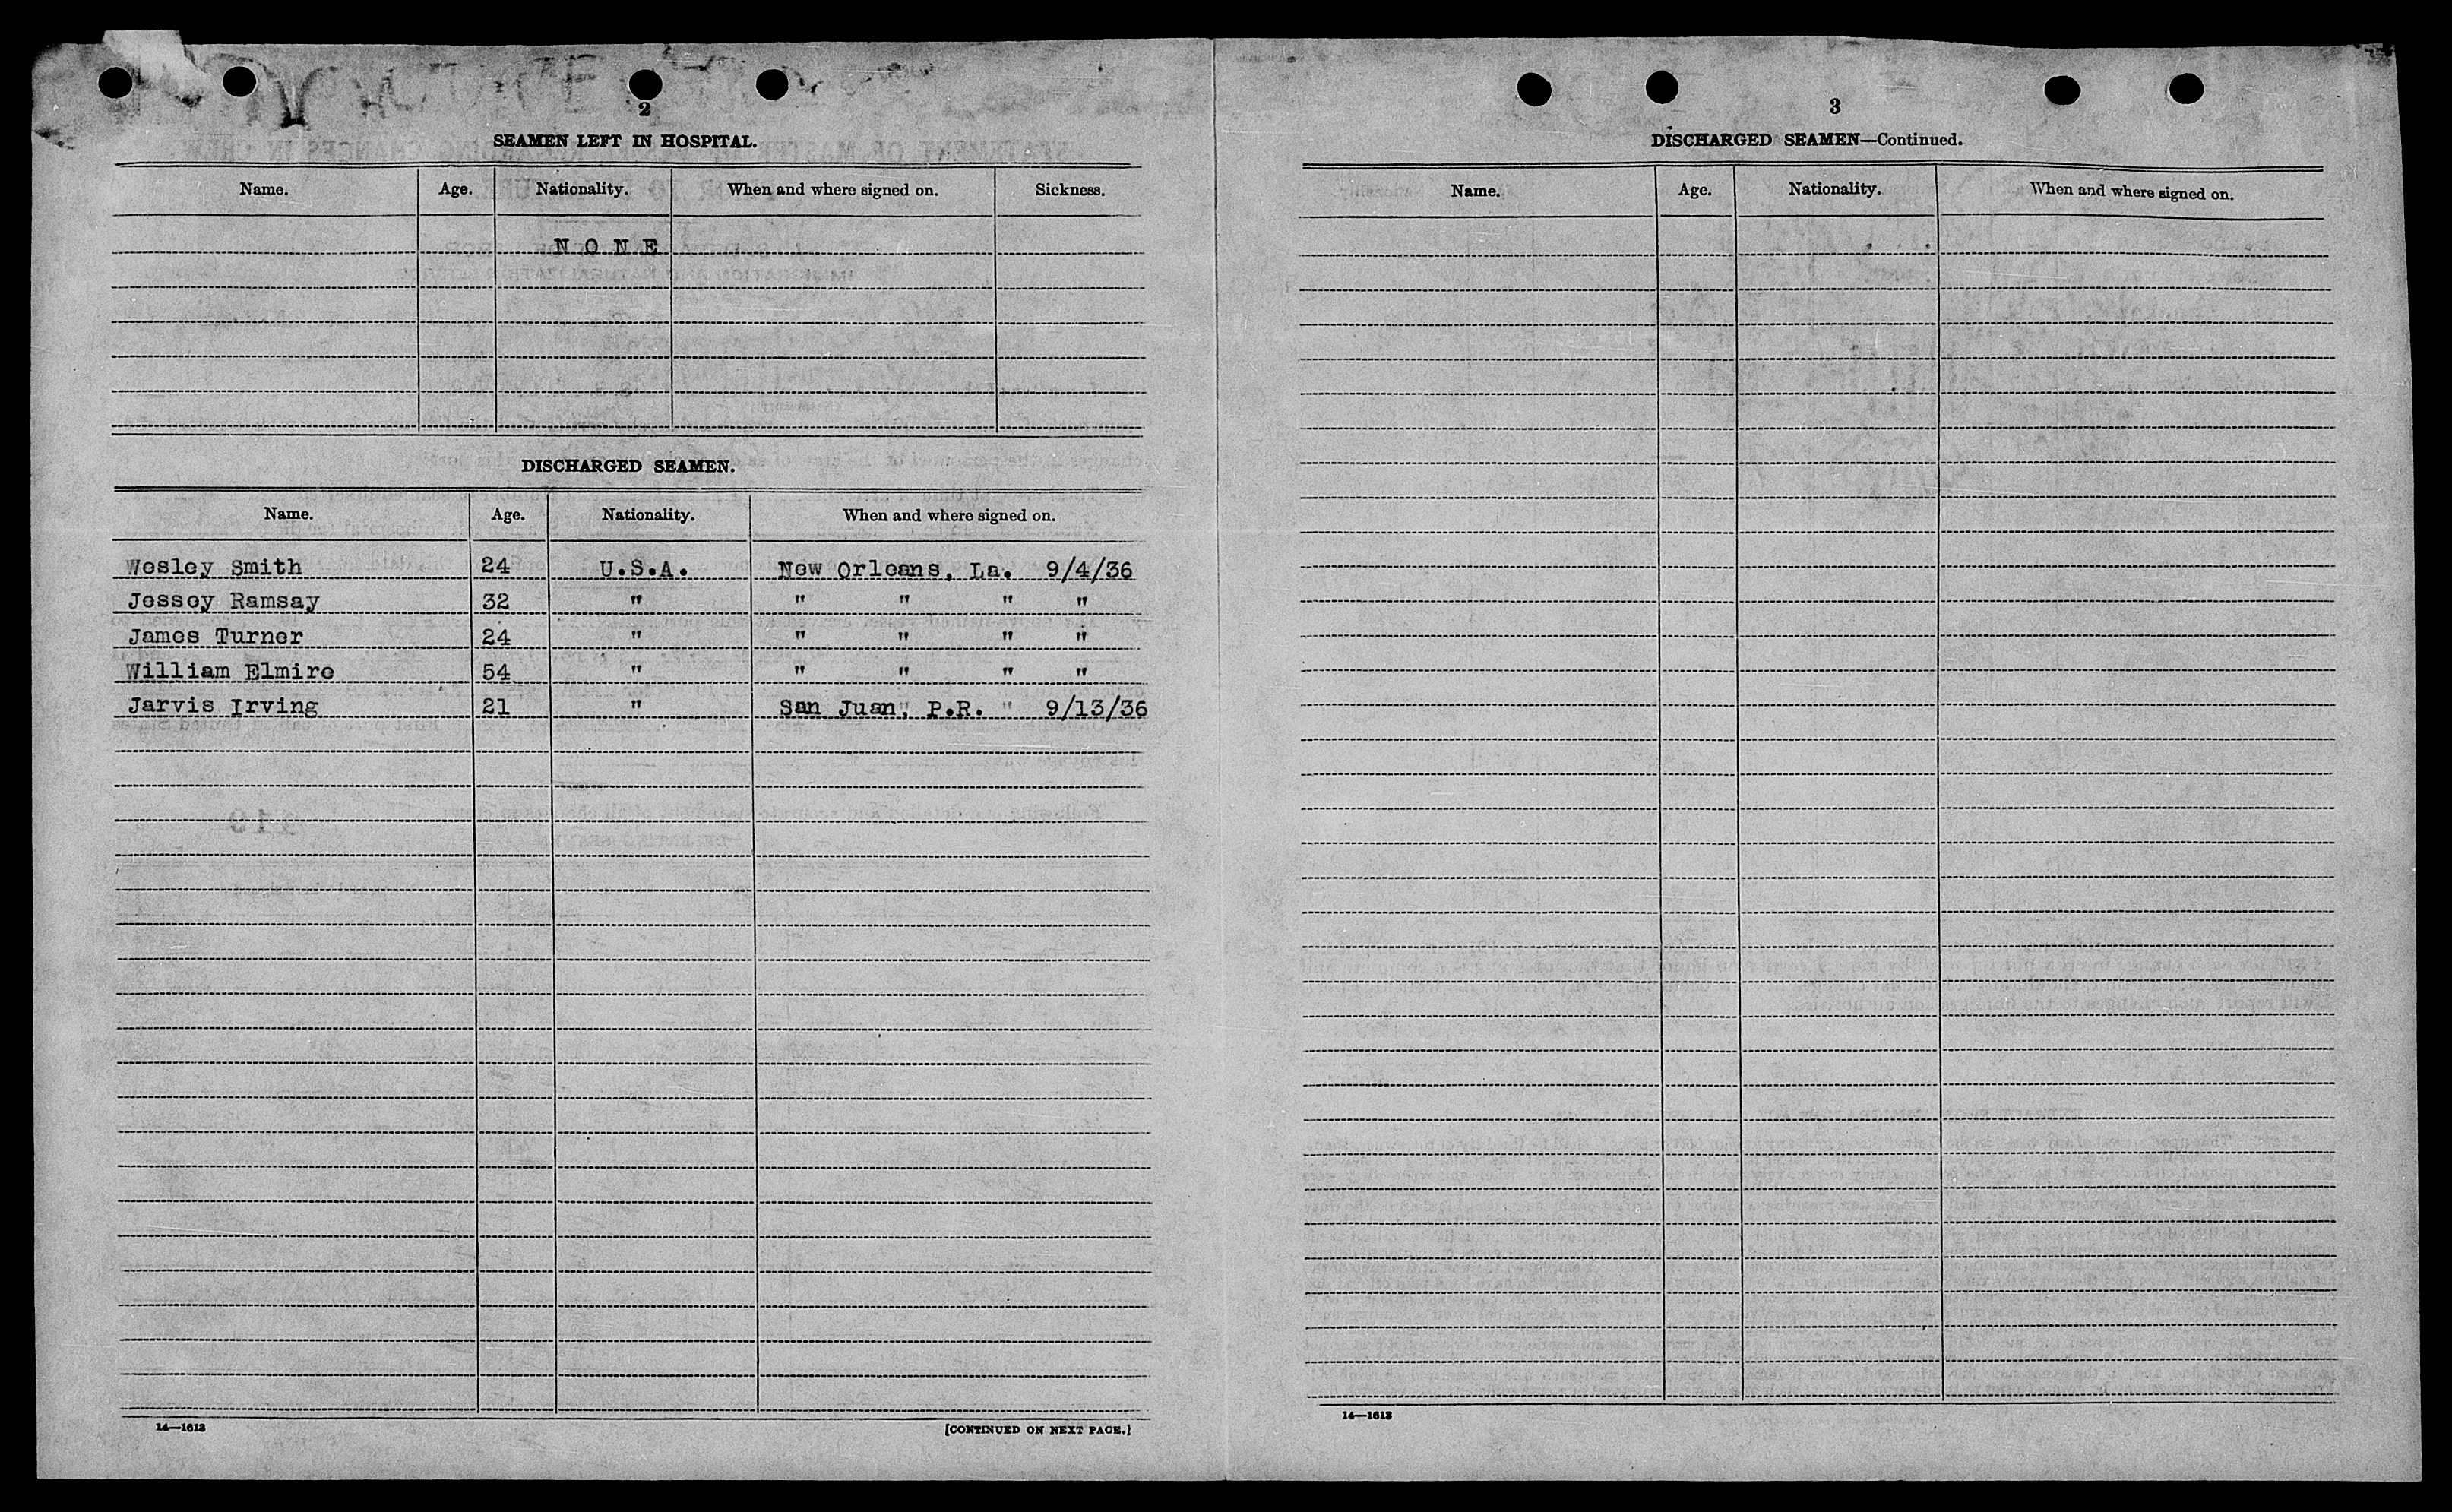 2
SEAMEN LEFT IN HOSPITAL.
Name. Age. Nationality. When and where signed on. Sickness.
NONE
DISCHARGED SEAMEN.
Name. Age. Nationality. When and where signed on.
Wesley Smith 24 U.S.A. New Orleans, La. 9/4/36
Jessey Ramsay 32 " " " " "
James Turner 24 " " " " "
William Elmire 54 " " " " "
Jarvis Irving 21 " San Juan, P.R. " 9/13/36
14—1613 [CONTINUED ON NEXT PAGE.]
3
DISCHARGED SEAMEN—Continued.
Name. Age. Nationality. When and where signed on.
14—1613